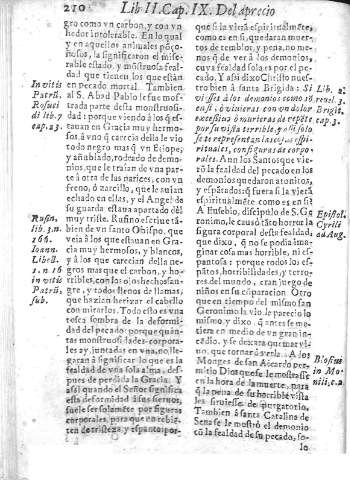 210 Lib II. Cap. IX. Del aprecio
gro como vn carbon, y con vn
hedor intolerable. En lo qual
y en aquellos animales poço-
ñosos, la significaron el mise-
rable estado, y mõstruosa feal-
dad que tienen los que estàn
en pecado mortal. Tambien
al S. Abad Pablo le fue mos-
trada parte desta monstruosi-
dad: porque viendo à los q̃ es-
tauan en Gracia muy hermo-
sos, à vno q̃ carecia della le vio
todo negro mas q̃ vn Etiope,
y añublado, rodeado de demo-
nios, que le traìan de vna par-
te à otra de las narices, con vn
freno, ò zarcillo, que le auian
echado en ellas, y el Angel de
su guarda estaua apartado dèl
muy triste. Rufino escriue tã-
bien de vn santo Obispo, que
veìa à los que estauan en Gra-
cia muy hermosos, y blancos,
y à los que carecian della ne-
gros mas que el carbon, y ho-
rribles, con los ojos hechos san-
gre, y todos llenos de llamas,
que hazian herizar el cabello
con mirarlos. Todo esto es vna
tosca sombra de la deformi-
dad del pecado: porque quan-
tas monstruosidades corpora-
les ay, juntadas en vna, no lle-
garàn à significar lo que es la
fealdad de vna sola alma, des-
pues de perdida la Gracia. Y
assi quando el Señor significa
esta deformidad à sus sieruos,
suele ser solamẽte por figuras
corporales, para que no rebien-
ten de tristeza, y espanto: por-
In vitis
Patrũ.
Rosuei
di lib. 7
cap. 23.
Rufin.
lib. 3. n.
166.
Ioann.
Lib. 8.
1. n 16
in vitis
Patrũ,
sub.
que si la vieran espiritualmẽte,
como es en si, quedaran muer-
tos de temblor, y pena, no me-
nos q̃ de ver à los demonios,
cuya fealdad sola es por el pe-
cado. Y assi dixo Christo nues-
tro bien à santa Brigida: Si
vieses à los demonios como es
en si, ò vivieras con un dolor
excessivo, ò murieras de repẽte
por su vista terrible, y assi solo
se te representan las cosas espi-
rituales, con figuras de corpo-
rales. A nn los Santos que vie-
rõ la fealdad del pecado en los
demonios quedaron atonitos,
y espãtados: q̃ fuera si la vierã
espiritualmẽte como es en si?
A Eusebio, discipulo de S. Ge-
ronimo, le causò tãto horror la
figura corporal desta fealdad,
que dixo, q̃ no se podia ima-
ginar cosa mas horrible, ni es-
pantosa: porque todos los es-
pãtos, horribilidades, y terro-
res del mundo, eran juego de
niños en su cõparacion. Otro
que en tiempo del mismo san
Geronimo la vio, le parecio lo
mismo, y dixo, q̃ antes se me-
tiera en medio de vn gran in-
cẽdio, y se dexara quemar vi-
uo, que tornarà à verla. A los
Monges de san Accardo per-
mitio Dios que se le mostrasse
en la hora de la muerte, para
q̃ la pena de su horrible vista
les siruiesse de purgatorio.
Tambien à santa Catalina de
Sena se le mostrò el demonio
cõ la fealdad de su pecado, so-
lo
Lib. 2.
reuel. 3.
Brigit.
cap. 3.
Epistol.
Cyrili
ad Aug.
Blosius
in Mo-
nili, c. 2.